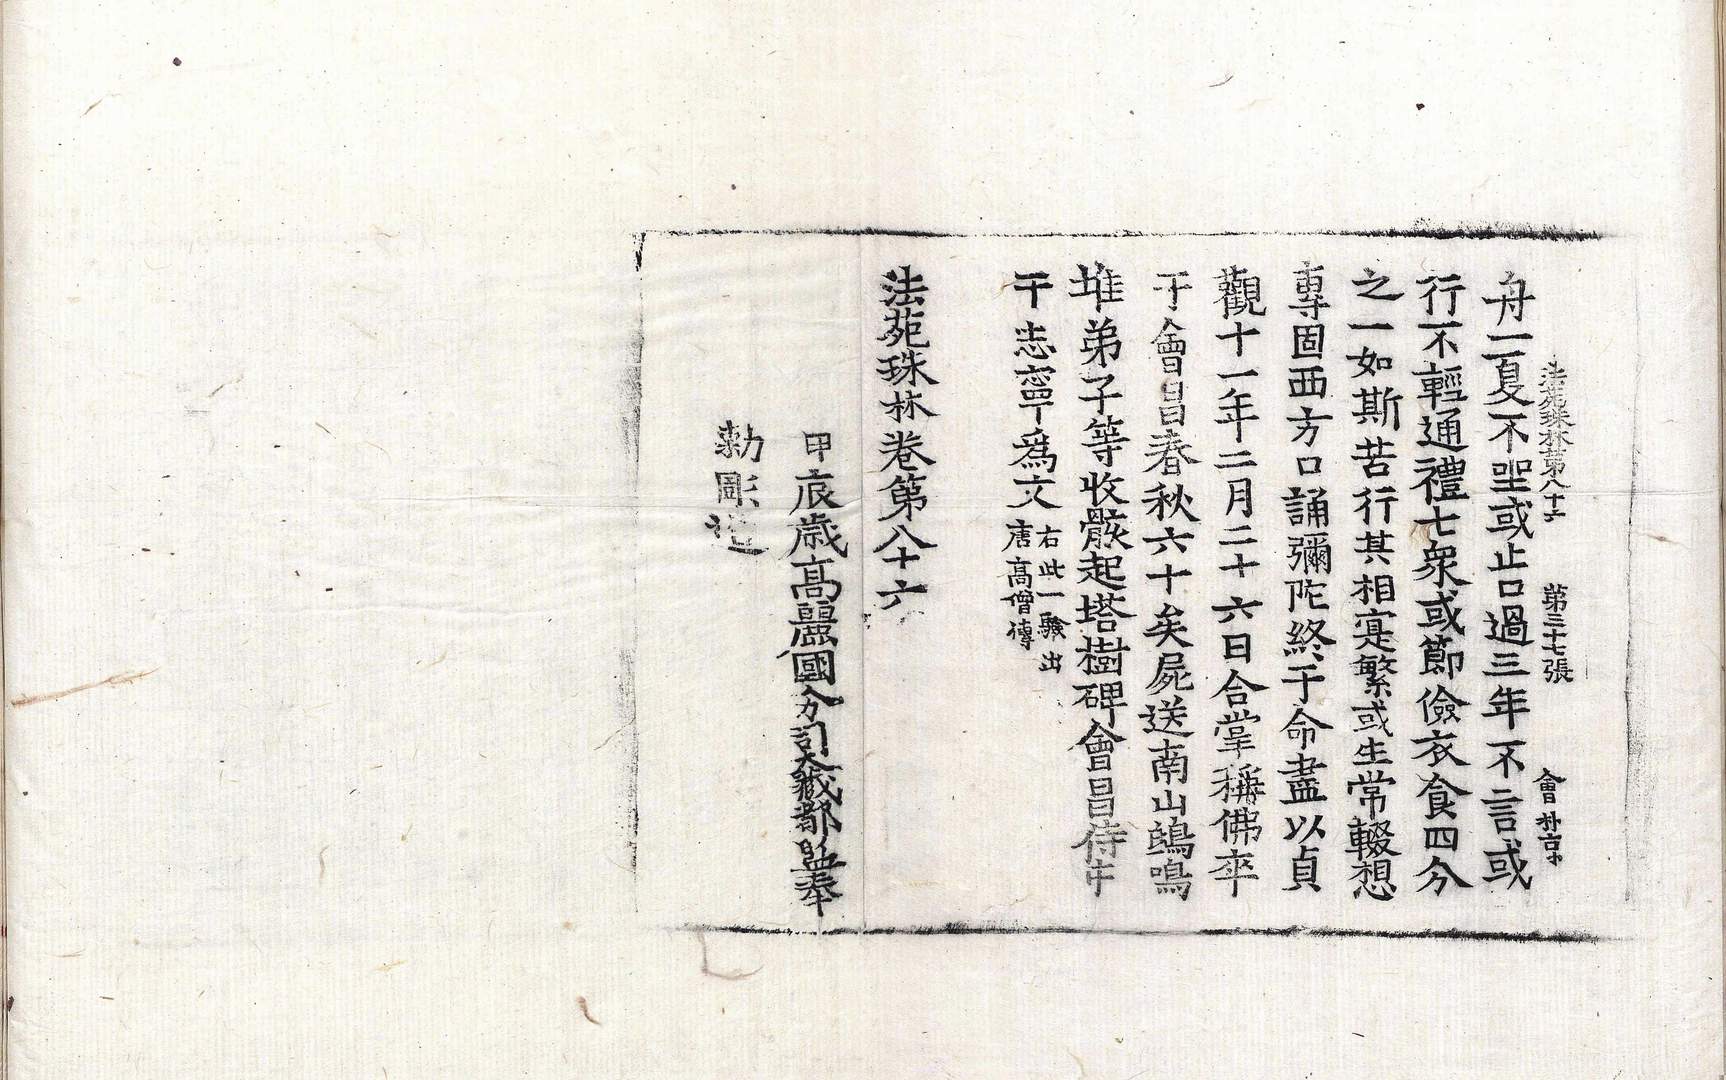 法苑珠林第八十六 第三十七張 會
舟一夏不坐或止口過三年不言或
行不輕通禮七衆或節儉衣食四分
之一如斯苦行其相寔繁或生常輟想
專固西方口誦彌陀終于命盡以貞
觀十一年二月二十六日合掌稱佛卒
于會昌春秋六十矣屍送南山鵄鳴
堆弟子等收骸起塔樹碑會昌侍中
于志寧爲文 右此一驗出
唐高僧傳
法苑珠林卷第八十六
甲辰歳高麗國分司大藏都監奉
勅彫造